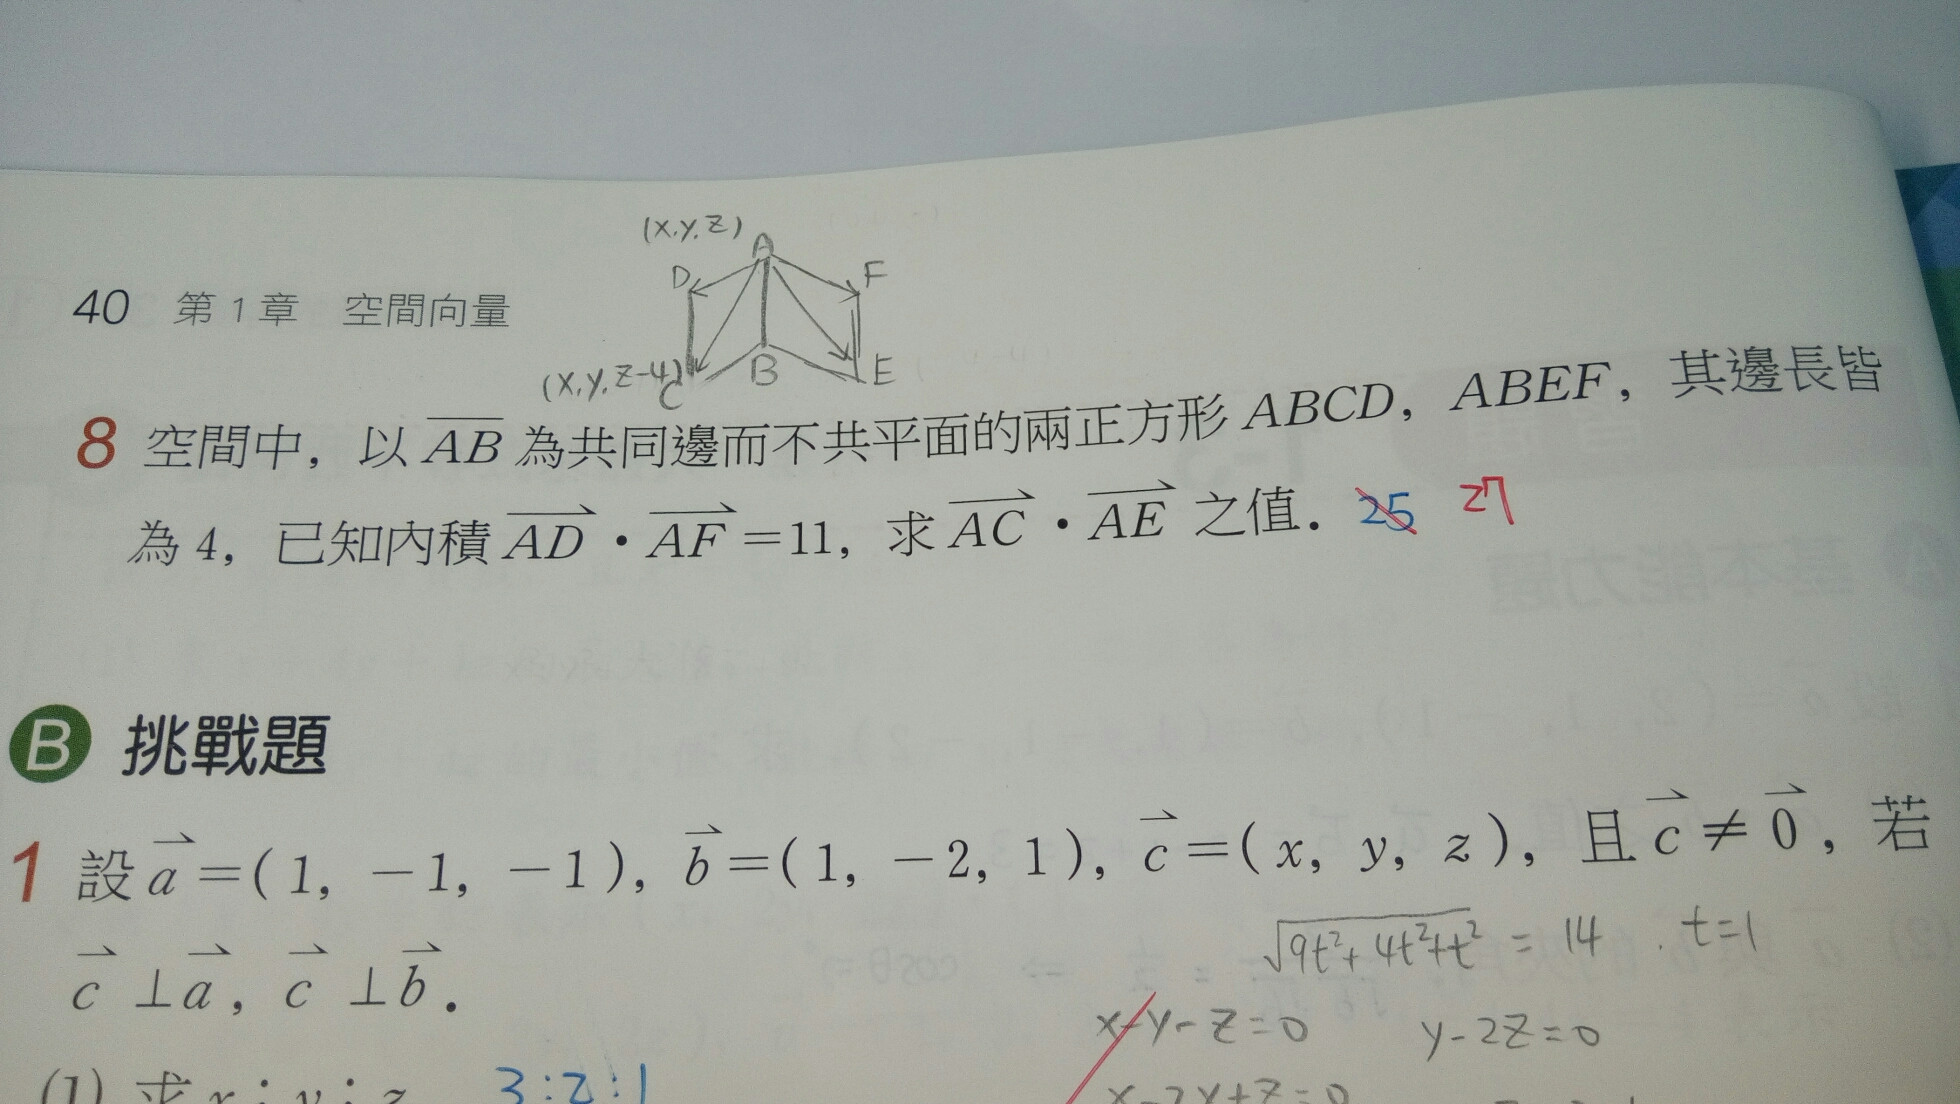 (x,y,z)
A
D F
40 第1章 空間向量
(x,y,z-4)
C B E
8 空間中，以 AB 為共同邊而不共平面的兩正方形 ABCD，ABEF，其邊長皆
為 4，已知內積 AD·AF=11，求 AC·AE 之值． 25 27
B 挑戰題
1 設 a=(1, -1, -1), b=(1, -2, 1), c=(x, y, z)，且 c≠0，若
c⊥a，c⊥b．
√9t²+4t²+t² = 14 . t=1
x-y-z=0 y-2z=0
(1) 求 x：y：z 3:2:1
x-2y+z=0